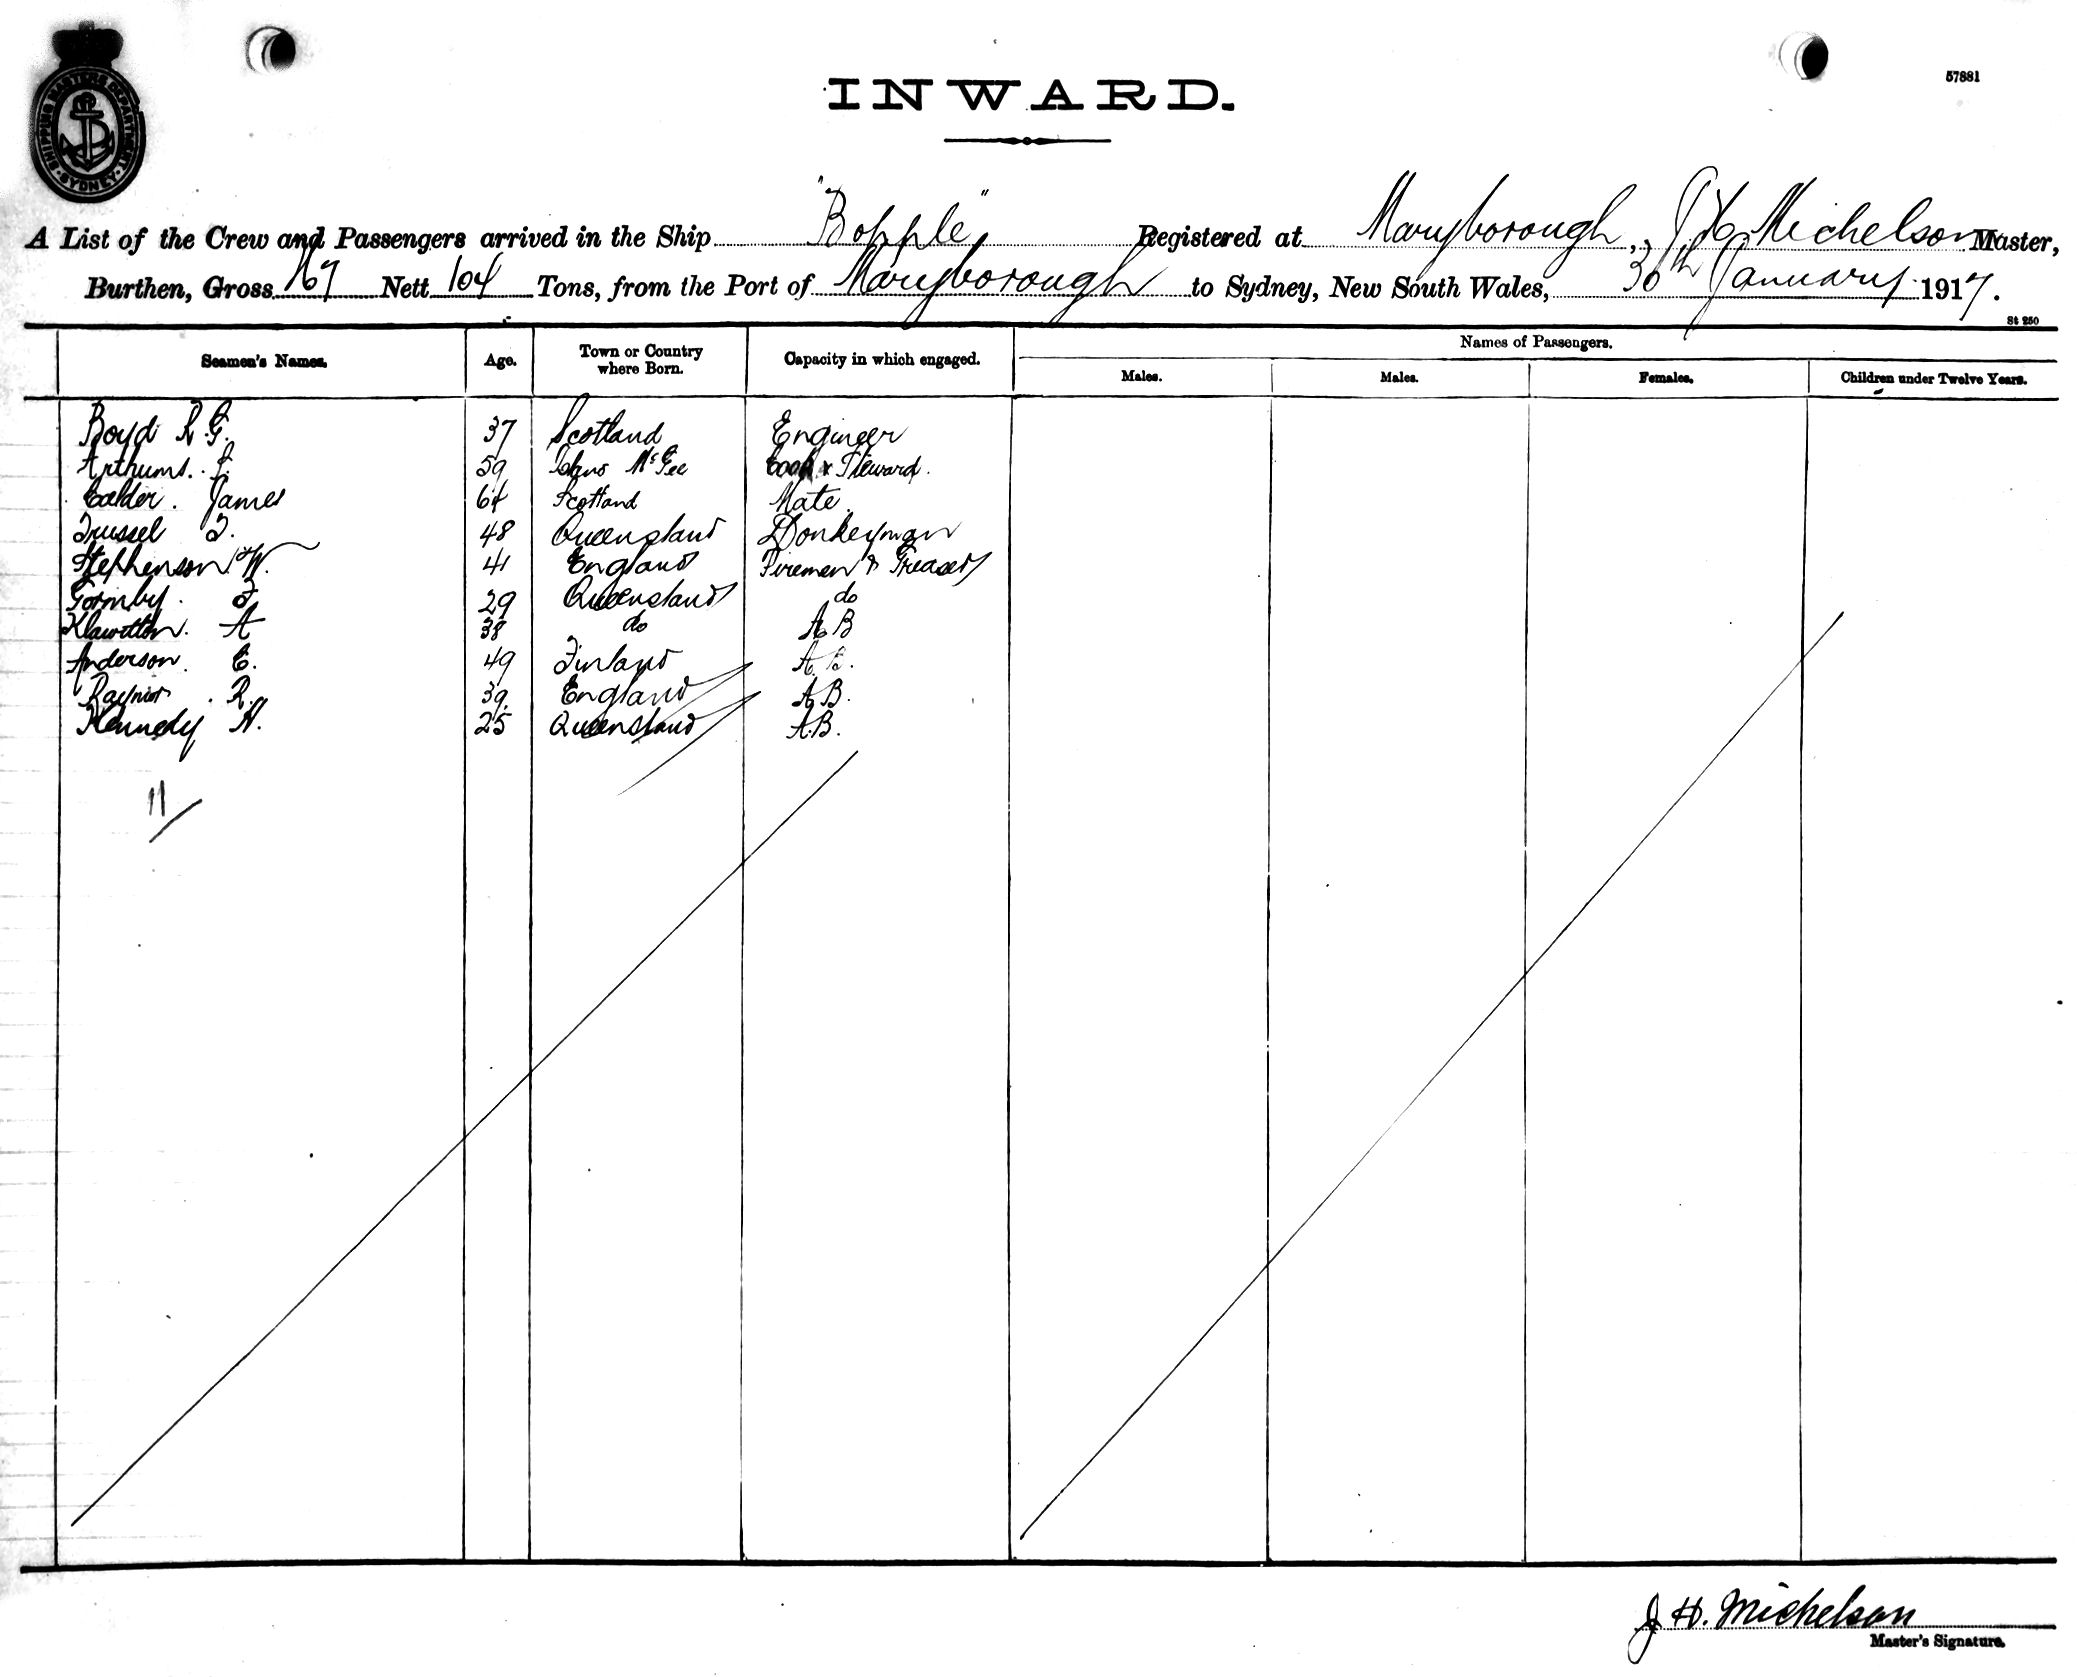 SHIPPING MASTERS DEPARTMENT
SYDNEY
57881
INWARD.
A List of the Crew and Passengers arrived in the Ship "Bopple" Registered at Maryborough, J H Michelson Master,
Burthen, Gross 167 Nett 104 Tons, from the Port of Maryborough to Sydney, New South Wales, 30th January 1917.
St 250
Seamen's Names. Age. Town or Country where Born. Capacity in which engaged. Names of Passengers.
Males. Males. Females. Children under Twelve Years.
Boyd R.G. 37 Scotland Engineer
Arthurns. J. 59 Cook & Steward.
Calder. James 64 Scotland Mate.
Trussel T. 48 Queensland Donkeyman
Stephenson W. 41 England Firemen & Greaser
Gormby. F 29 Queensland do
Klawitton. A 38 do A B
Anderson. C. 49 Finland A B.
Raynor. R. 39. England A B.
Kennedy H. 25 Queensland A.B.
11
J H. Michelson
Master's Signature.